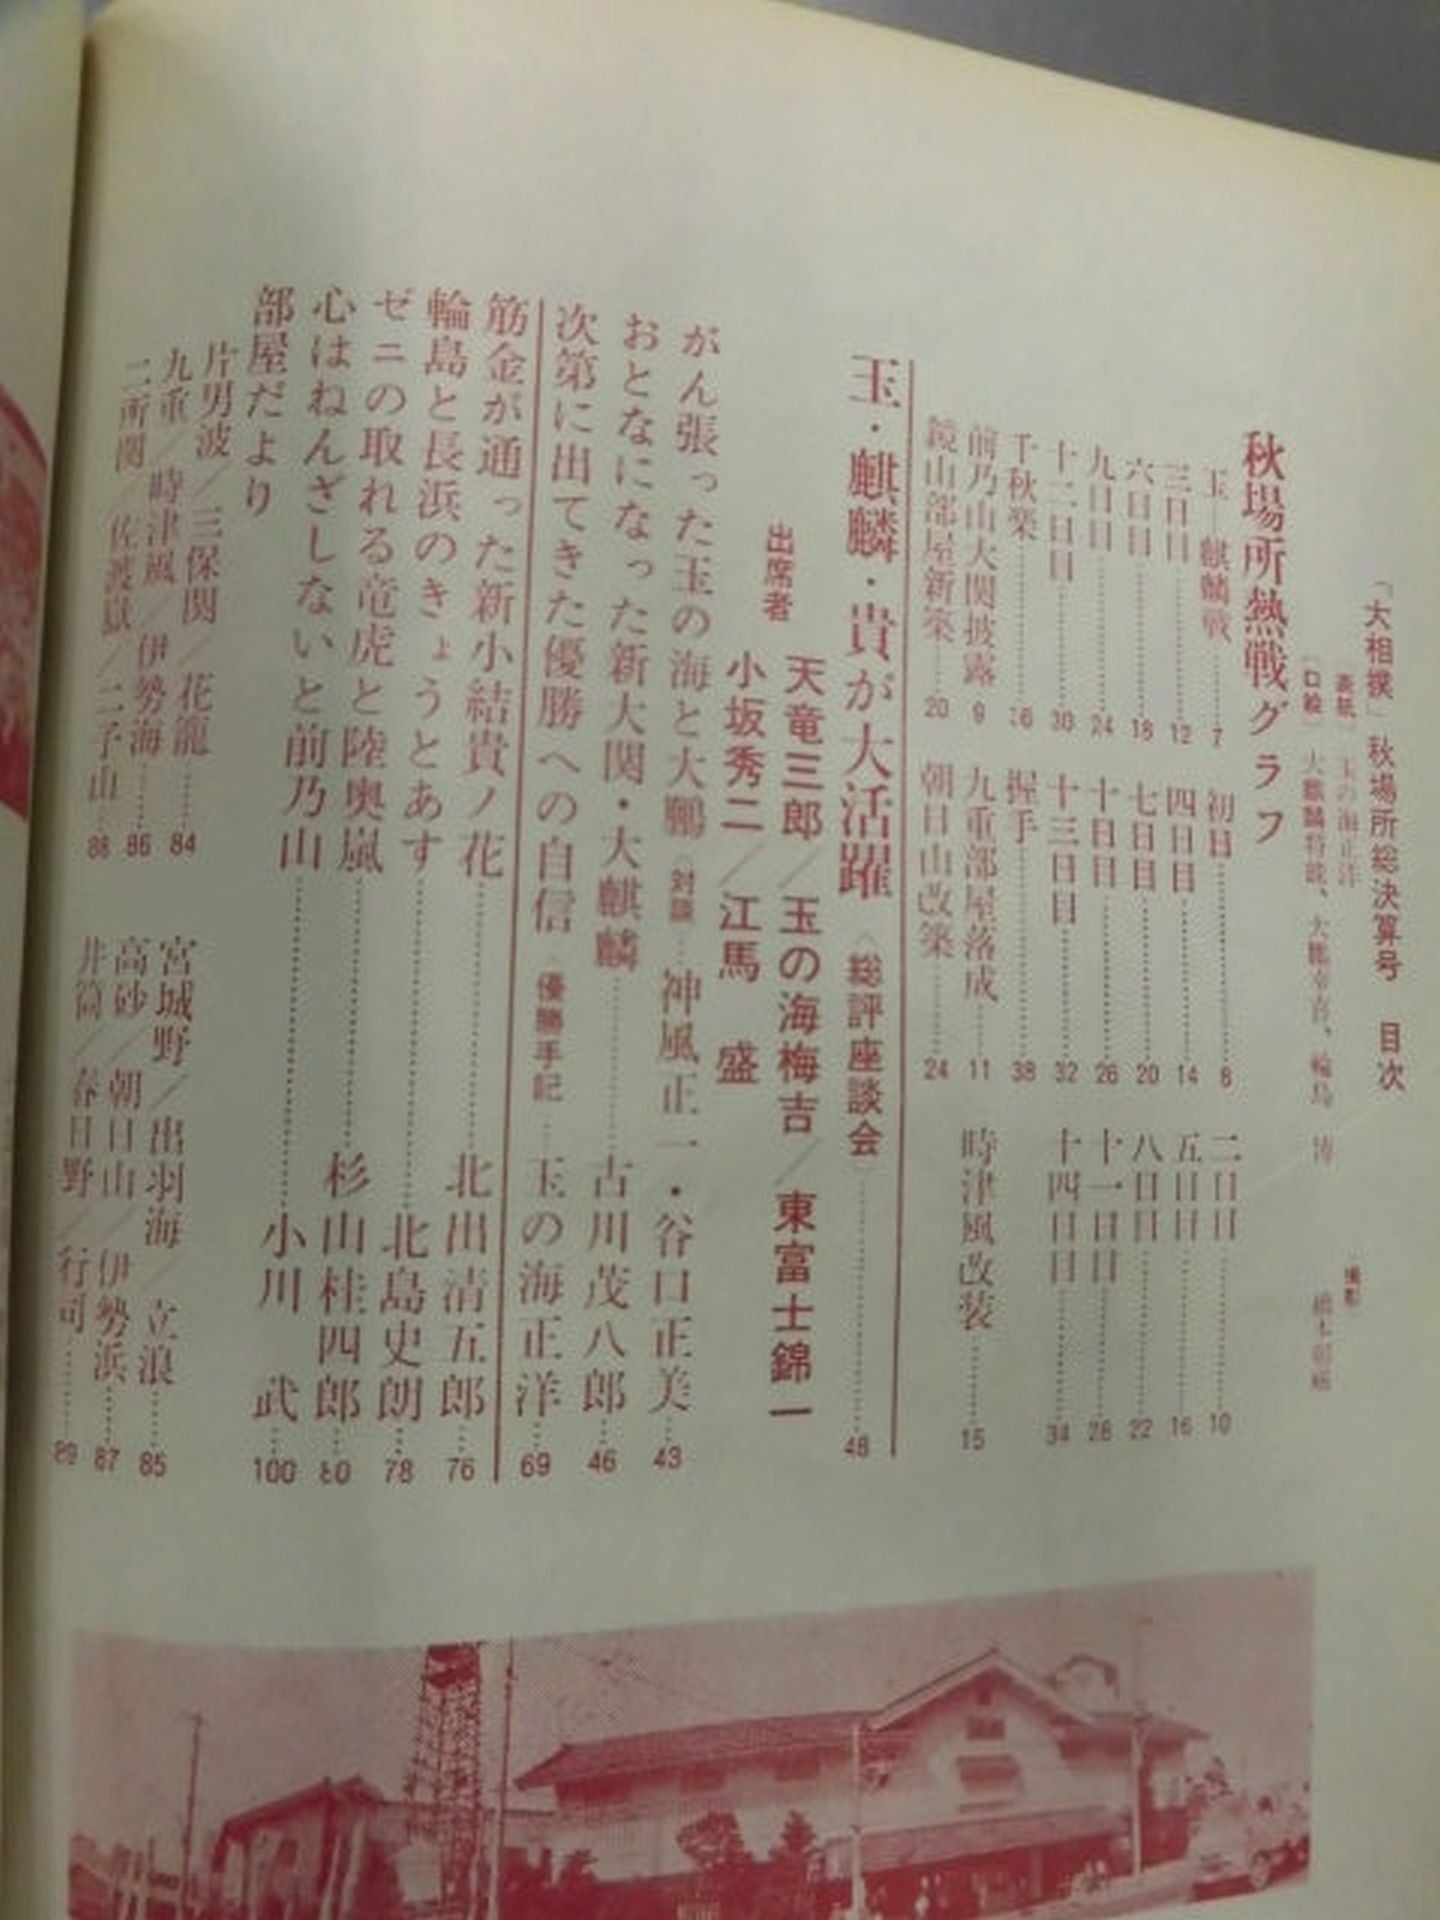 「大相撲」秋場所総決算号 目次
〔表紙〕玉の海正洋
〔口絵〕大麒麟将能、大鵬幸喜、輪島 博
撮影
秋場所熱戦グラフ
玉―麒麟戦……7 初日……8 二日目……10
三日目……12 四日目……14 五日目……16
六日目……18 七日目……20 八日目……22
九日目……24 十日目……26 十一日目……28
十二日目……30 十三日目……32 十四日目……34
千秋楽……36 握手……38
前乃山大関披露 9 九重部屋落成……11 時津風改装……15
鏡山部屋新築……20 朝日山改築……24
玉・麒麟・貴が大活躍〈総評座談会……48
出席者 天竜三郎／玉の海梅吉／東富士錦一
小坂秀二／江馬 盛
がん張った玉の海と大鵬〈対談……神風正一・谷口正美……43
おとなになった新大関・大麒麟……古川茂八郎……46
次第に出てきた優勝への自信〈優勝手記……玉の海正洋……69
筋金が通った新小結貴ノ花……北出清五郎……76
輪島と長浜のきょうとあす……北島史朗……78
ゼニの取れる竜虎と陸奥嵐……杉山桂四郎……80
心はねんざしないと前乃山……小川 武……100
部屋だより
片男波／三保関／花籠……84 宮城野／出羽海／立浪……85
九重／時津風／伊勢海……86 高砂／朝日山／伊勢浜……87
二所関／佐渡嶽／二子山……88 井筒／春日野／行司……89